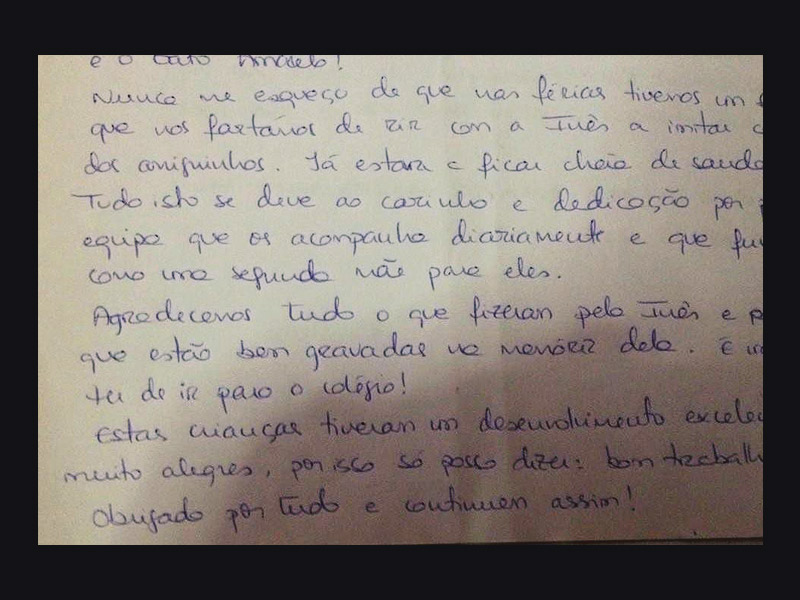 e o Caso Amarelo!
Nunca me esqueço de que nas férias tivemos um
que nos fartámos de rir com a Inês a imitar
dos amiguinhos. Já estava a ficar cheia de sauda
Tudo isto se deve ao carinho e dedicação por p
equipa que os acompanha diariamente e que fun
como uma segunda mãe para eles.
Agradecemos tudo o que fizeram pela Inês e p
que estão bem gravadas na memória dela. E
ter de ir para o colégio!
Estas crianças tiveram um desenvolvimento excele
muito alegres, por isso só posso dizer: bom trabalh
Obrigado por tudo e continuem assim!